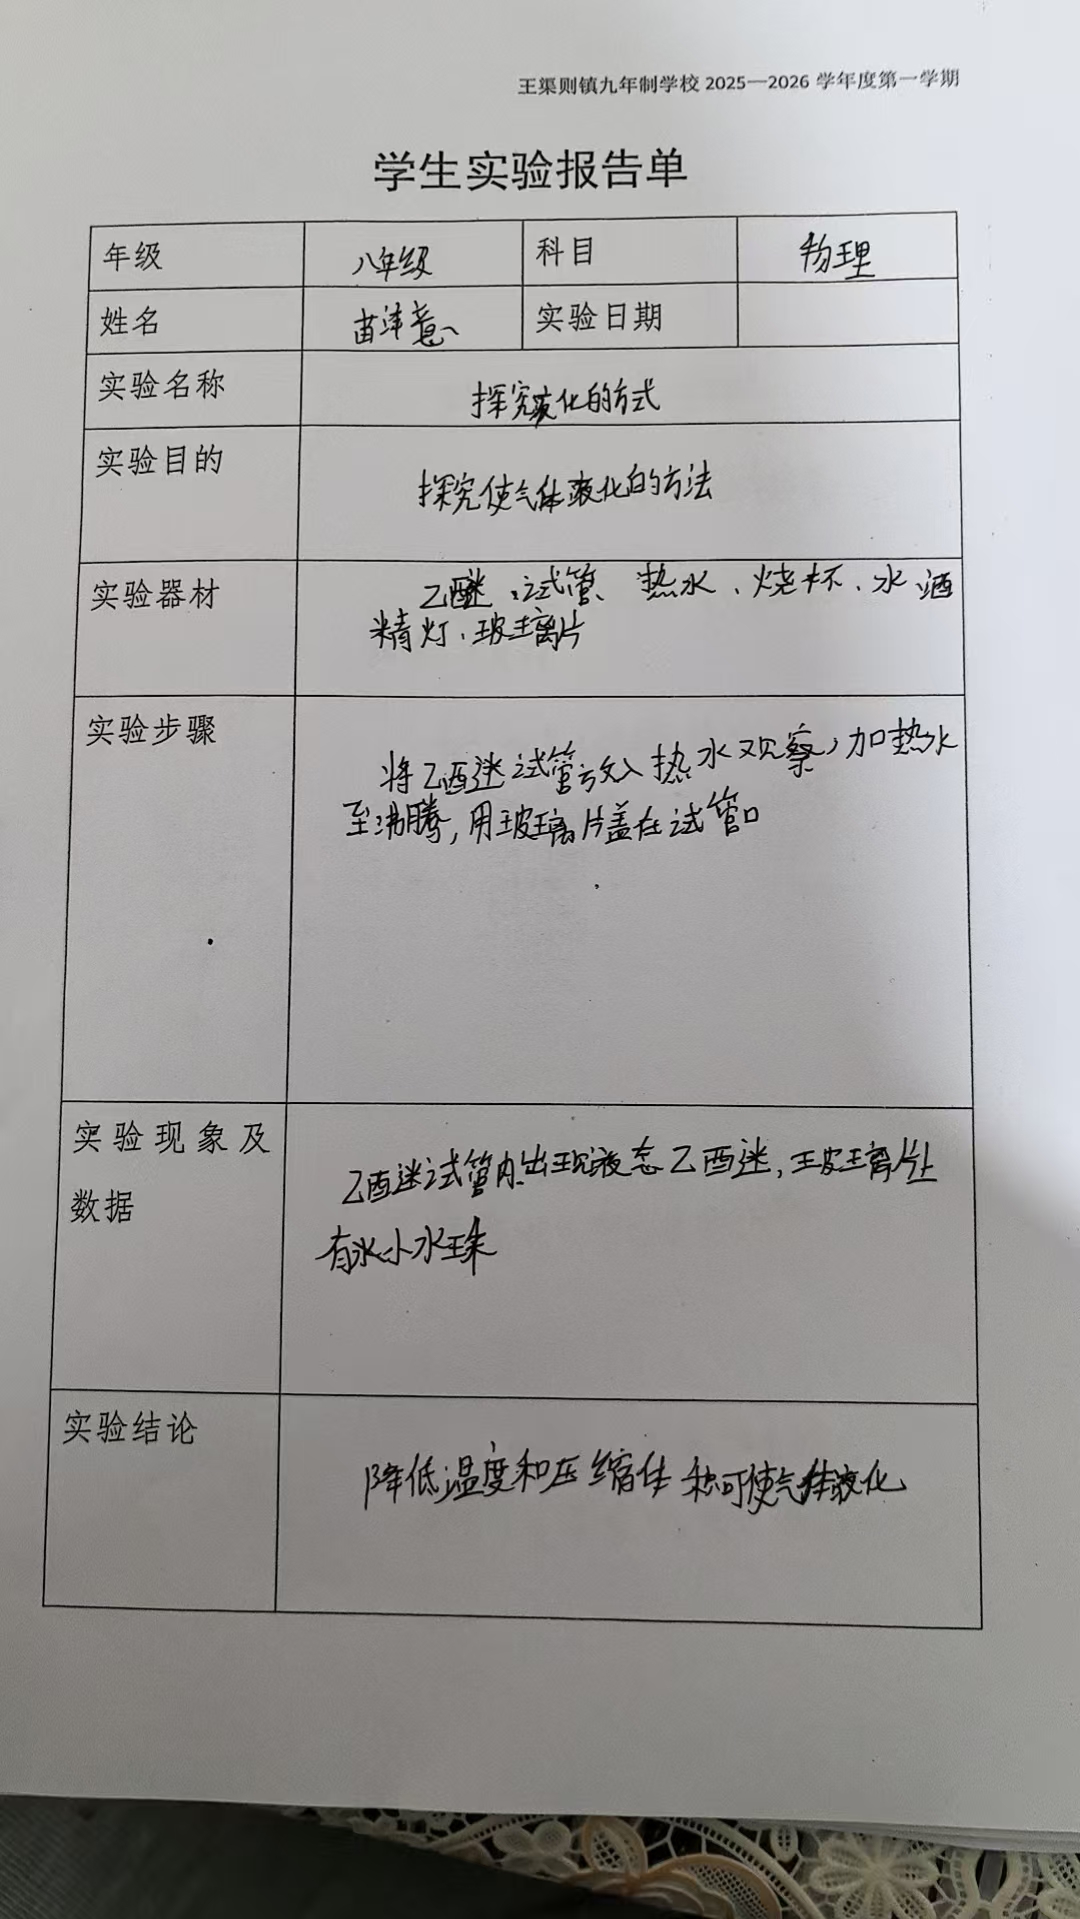 王渠则镇九年制学校 2025—2026 学年度第一学期
学生实验报告单
年级 八年级 科目 物理
姓名 苗津意 实验日期
实验名称 探究液化的方式
实验目的 探究使气体液化的方法
实验器材 乙醚、试管、热水、烧杯、水、酒
精灯、玻璃片
实验步骤
将乙醚试管放入热水观察,加热水
至沸腾,用玻璃片盖在试管口
实验现象及
数据
乙醚试管内出现液态乙醚,玻璃片上
有水小水珠
实验结论
降低温度和压缩体积可使气体液化